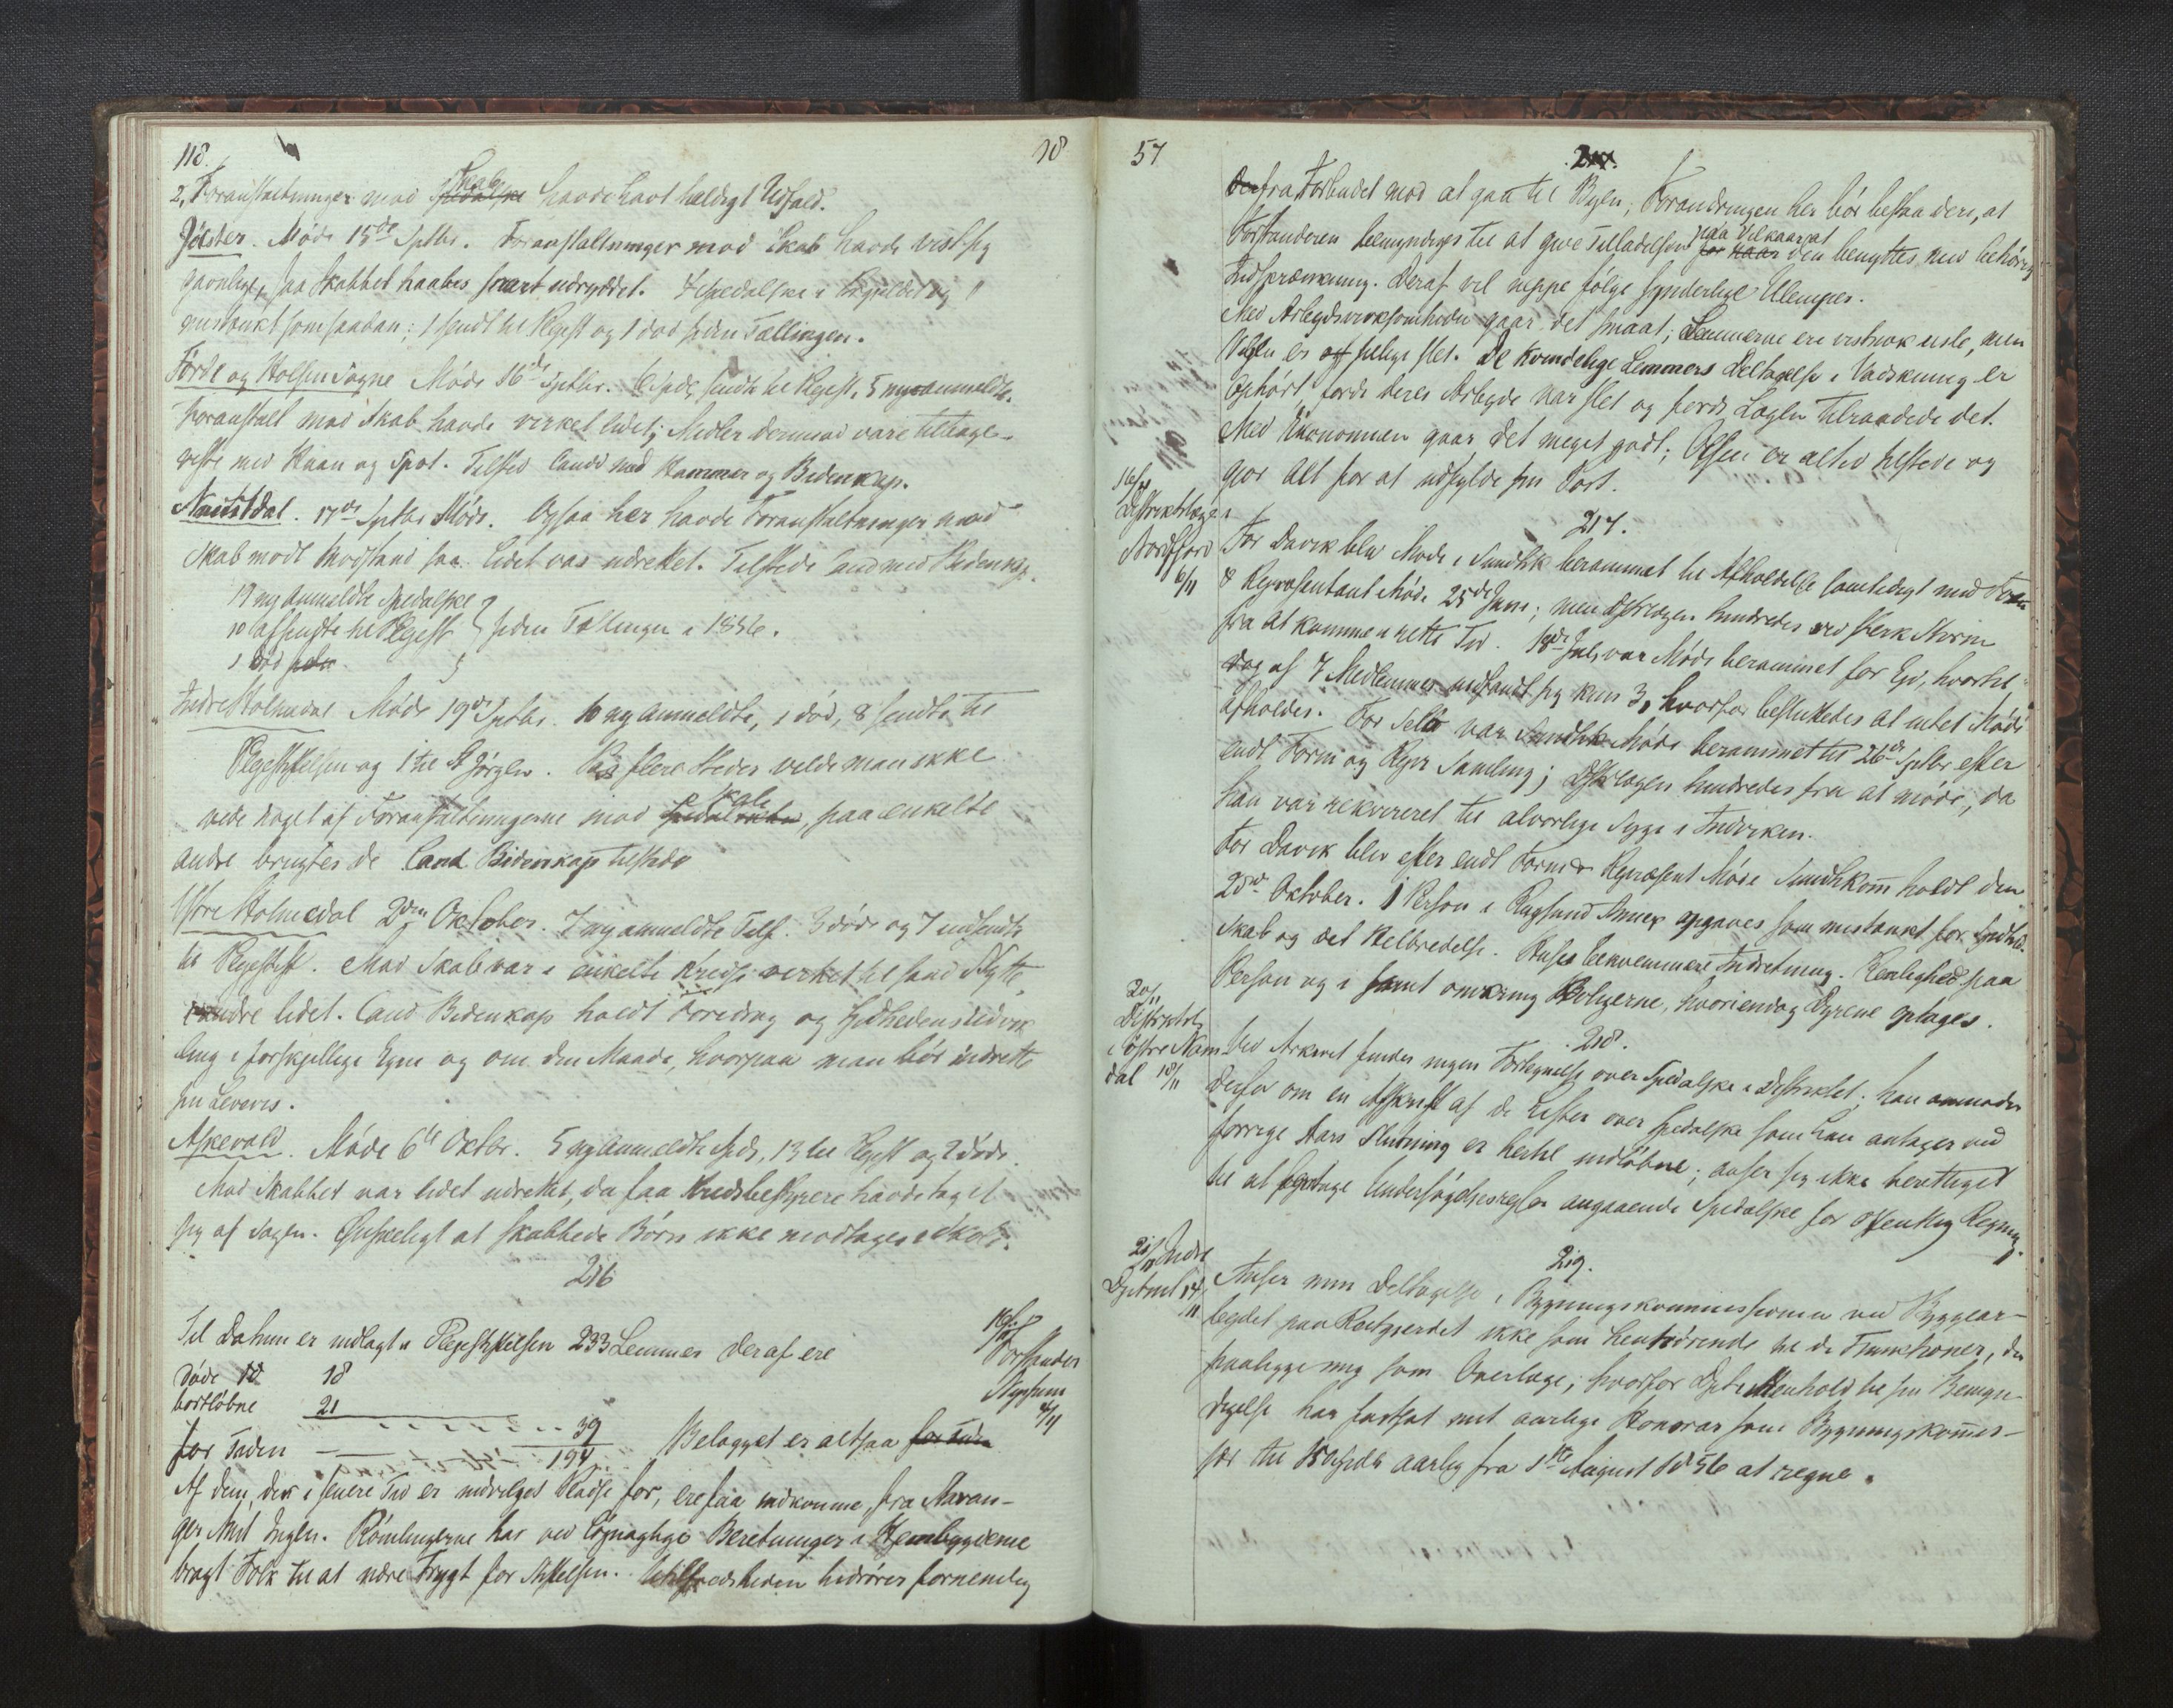 118.
18
2, Foranstaltninger mod Spedalske Skab havde havt heldigt Udfald.
Jölster. Møde 15de Septbr. Foranstaltninger mod Skab havde vist sig
gavnlige, saa Skabbet haabes snart udryddet. 4 Spedalske og 1
mistænkt som saadan; 1 sendt til Plejest og 1 død siden Tællingen.
Förde og Holsen Sogne Møde 16de Septbr. 6 Spedk sendte til Plejest, 5 nyanmeldte.
Foranstalt mod Skab havde virket lidet; Midler dermod vare tilbage-
viste med Haan og Spot. Tilsted Candd med Hammer og Bidenkap.
Naustdal. 17de Septbr Møde. Ogsaa her havde Foranstaltninger mod
Skab mødt Modstand saa lidet var udrettet. Tilstede Cand med Bidenkap.
19 nyanmeldte Spedalske
10 afsendte til Plejest } siden Tællingen i 1856.
1 død siden
Indre Holmedal Møde 19de Septbr. 10 nyanmeldte, 1 død, 8 sendte til
Plejestiftelsen og 1 til St Jørgen. Paa flere Steder vilde man ikke
vide noget af Foranstaltningerne mod Spedalskhe Skab, paa enkelte
andre brugtes de Cand Bidenkap tilstede
Ytre Holmedal 2den Oktober. 7 nyanmeldte Tilf. 3 døde og 7 indsendte
til Plejestift. Mod Skab var i enkelte Kredse virket til sand Nytte
i andre lidet. Cand Bidenkap holdt Foredrag og Spedskhedens Udvik
ling i forskjellige Egne og om den Maade, hvorpaa man bør indrette
sin Levevis.
Askevold. Møde 6te Oktbr. 5 nyanmeldte Spedk, 13 til Plejest og 2 døde.
Mod Skabbet var lidet udrettet, da faa Kredsbestyrere havde taget
sig af Sagen. Ønskeligt at skabbede Børn ikke modtages i Skole.
216
Til Datum er indlagt i Plejestiftelsen 233 Lemmer deraf ere
Forstander
4/11
Døde 18
bortløbne 21
39
for Tiden 194 Belægget er altsaa for Tiden
Af dem, der i senere Tid er indvilget Pladse for, ere faa indkomne, fra Stavan-
ger Amt Ingen. Rømlingerne har ved løgnagtige Beretninger i Hjembygderne
bragt Folk til at nære Frygt for Stiftelsen. Utilfredsheden hidrører fornemlig
57
214.
Der fra Forbudet mod at gaa til Byen; Forandringen her bør bestaa deri, at
Forstanderen bemyndiges til at give Tilladelsen for Haar paa Vilkaar at den benyttes med behørig
Indskrænkning. Deraf vil neppe følge synderlige Ulemper.
Med Arbejdsvirksomheden gaar det smaat; Lemmerne ere vistnok usle, men
Viljen er og sielige slet. De kvindelige Lemmers Deltagelse i Vadskning er
Ophørt fordi deres Arbejde var slet og fordi Lægen tilraadede det.
Med Økonomien gaar det meget godt; Olsen er altid tilstede og
gjør Alt for at udfylde sin Post.
16/11
Distriktslægen i
Nordfjord
6/11
217.
For Davik blev Møde i Sundhk berammet til Afholdelse samtidigt med Form
& Repræsentant Møde 25de Juni; men Distrlægen hindredes ved stærk Storm
fra at komme i rette Tid. 18de Juli var Møde berammet for Eid, hvortil
dog af 7 Medlemmer indfandt sig kun 3, hvorfor besluttedes at intet Møde
afholdes. For Selö var Sundhk Møde berammet til 26de Septbr efter
endt Form og Repr Samling; Distrlægen hindredes fra at møde, da
han var rekvireret til alvorlige Syge i Indviken.
For Davik blev efter endt Form & Repræsent Møde Sundhkom holdt den
20de Oktober. 1 Person i Rugsund Annex opgaves som mistænkt for Spedhed.
Skab og det Helbredelse. Huses bekvemmere Indretning. Renlighed paa
Person og i samt omkring Boligerne, hvori endog Dyrene optages.
20/11
Distriktsl
i Östre Nam
dal 18/11
218.
Ved Arkivet findes ingen Fortegnelse over Spedalske i Distriktet; han anmoder
derfor om en Afskrift af de Lister over Spedalske som han antager ved
forrige Aars Slutning er hertil indløbne; anser sig ikke berettiget
til at foretage Undersøgelsesrejser angaaende Spedalske for offentlig Regning.
21/11 Indre
Dptmt 14/11
219.
Anser min Deltagelse i Bygningskommissionen ved Byggear-
bejdet paa Reitgjerdet ikke som henhørende til de Funktioner, der
paaligge mig som Overlæge; hvorfor Dpt i Henhold til sin Bemyn-
digelse har fastsat mit aarlige Honorar som Bygningskommis-
sær til 150 Spdlr aarlig fra 1ste August 1856 at regne.